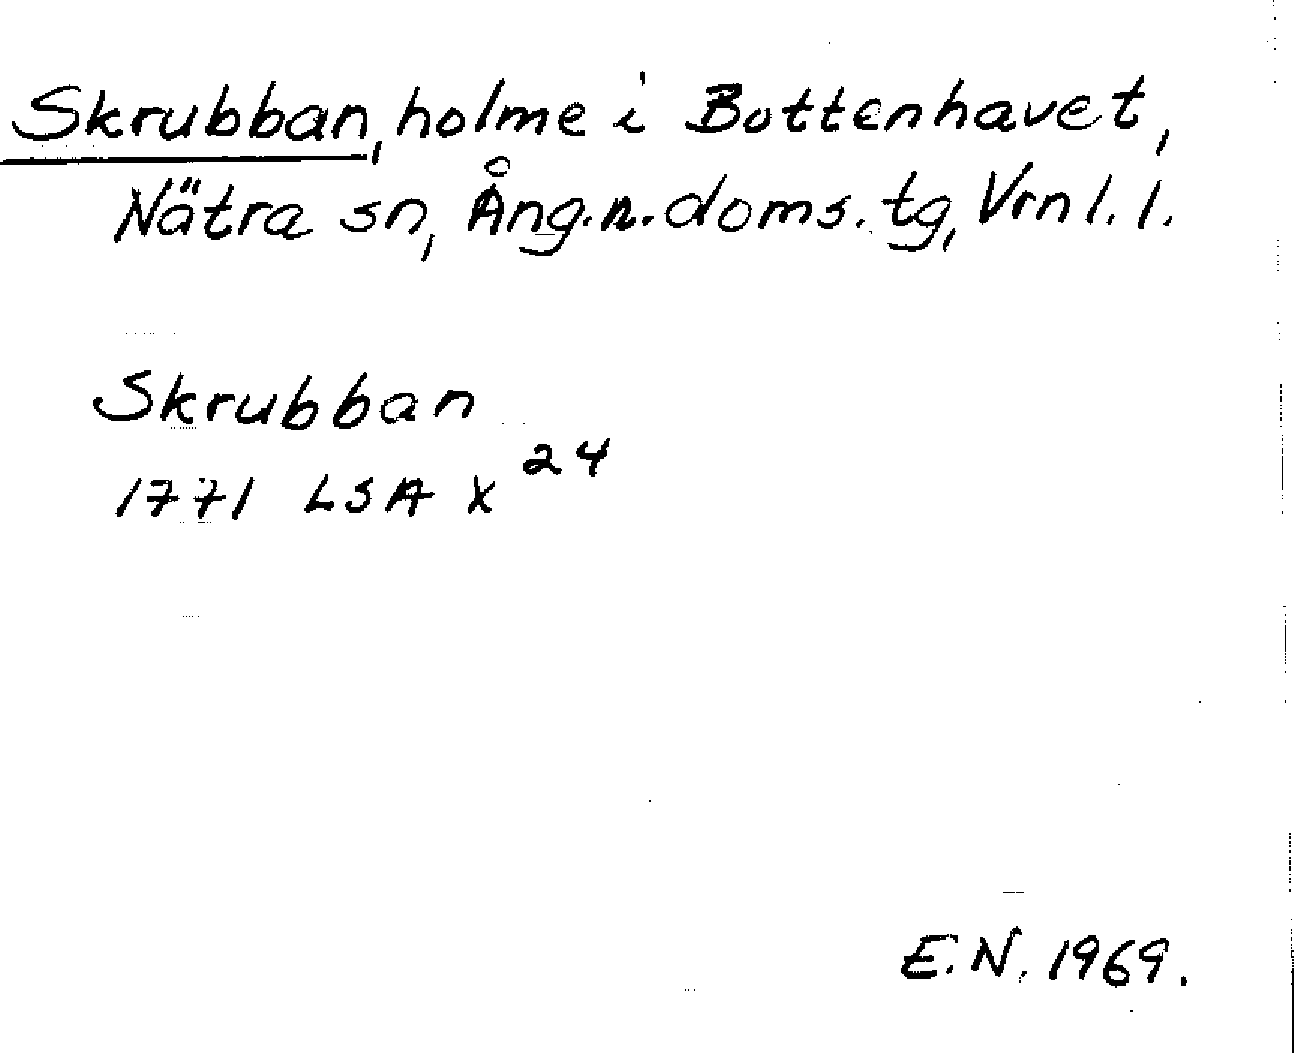 Skrubban, holme i Bottenhavet,
Nätra sn, Ång.n.doms.tg, Vrnl. l.
Skrubban
1771 LSA X 24
E.N. 1969.